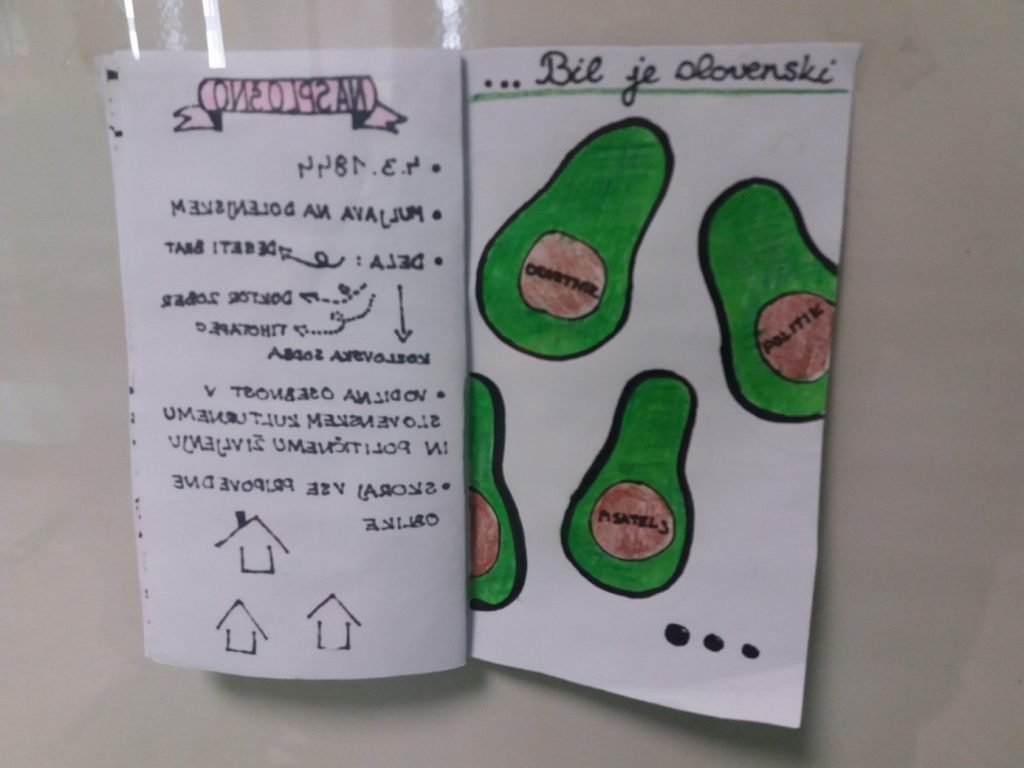 NA SPLOŠNO
• 4.3.1844
• MULJAVA NA DOLENJSKEM
• DELA: DESETI BRAT
DOKTOR ZOBER
TIHOTAPEC
KOZLOVSKA SODBA
• VODILNA OSEBNOST V
SLOVENSKEM KULTURNEMU
IN POLITIČNEMU ŽIVLJENJU
• SKORAJ VSE PRIPOVEDNE
OBLIKE
... Bil je slovenski
ODVETNIK
POLITIK
PISATELJ
...